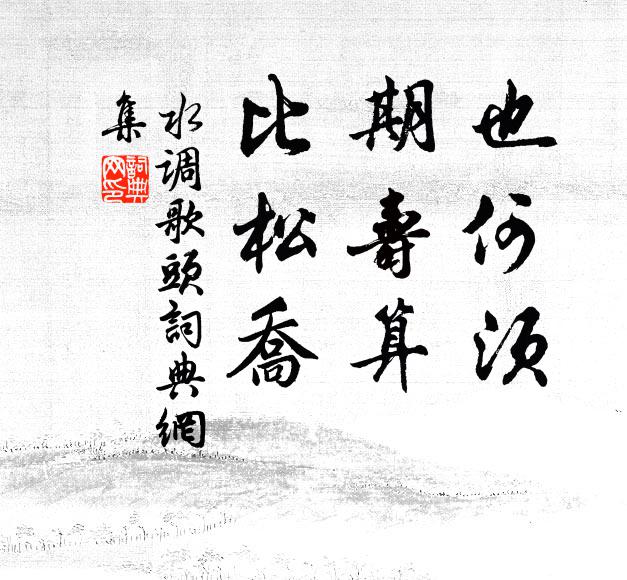 也何須
期壽算
比松喬
水調歌頭詞典網
集
詞典
网印